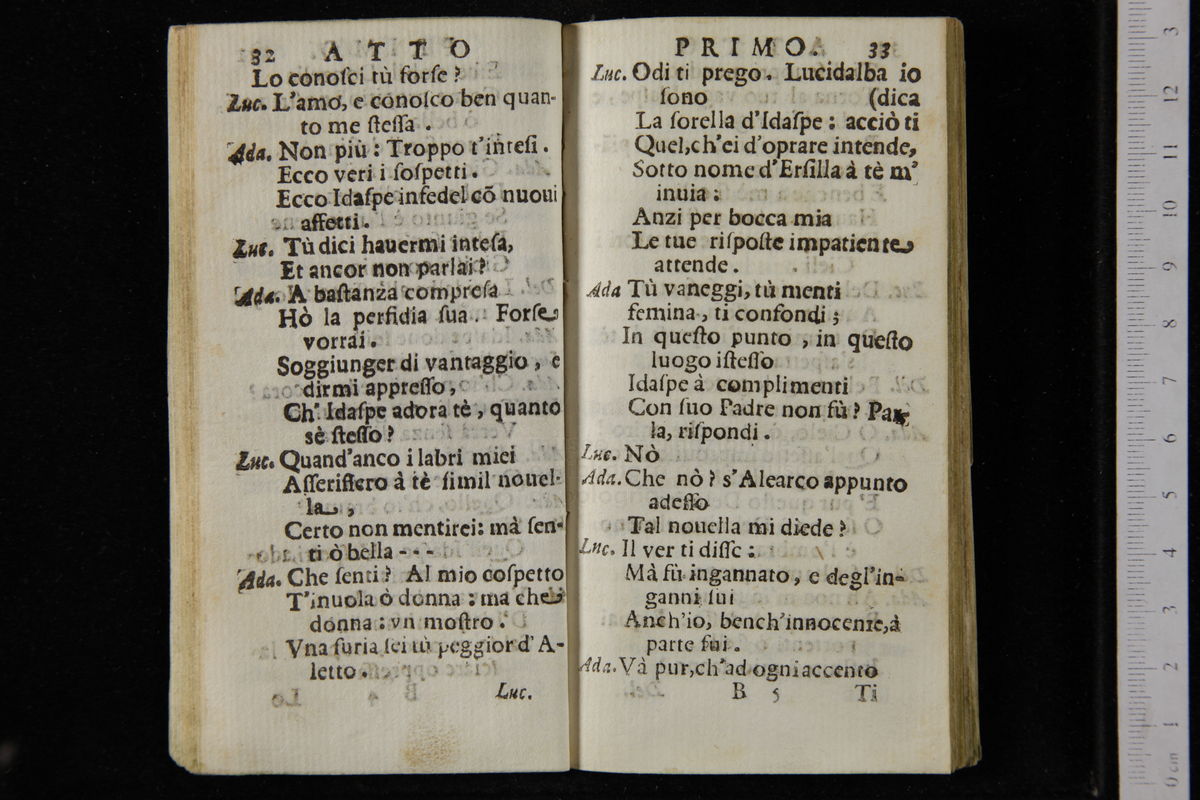 32 ATTO
Lo conoſci tù forſe?
Luc. L'amo, e conoſco ben quan-
to me ſteſſa.
Ada. Non più: Troppo t'inteſi.
Ecco veri i ſoſpetti.
Ecco Idaſpe infedel cõ nuoui
affetti.
Luc. Tù dici hauermi inteſa,
Et ancor non parlai?
Ada. A baſtanza compreſa
Hò la perfidia ſua. Forſe
vorrai.
Soggiunger di vantaggio, e
dirmi appreſſo,
Ch' Idaſpe adora tè, quanto
sè ſteſſo?
Luc. Quand'anco i labri miei
Aſſeriſſero à tè ſimil nouel-
la,
Certo non mentirei: mà ſen-
ti ò bella - - -
Ada. Che ſenti? Al mio coſpetto
T'inuola ò donna: ma che
donna: vn moſtro.
Vna furia ſei tù peggior d'A-
letto.
Luc.
PRIMO. 33
Luc. Odi ti prego. Lucidalba io
ſono (dica
La ſorella d'Idaſpe: acciò ti
Quel, ch'ei d'oprare intende,
Sotto nome d'Erſilla à tè m'
inuia:
Anzi per bocca mia
Le tue riſpoſte impatiente
attende.
Ada Tù vaneggi, tù menti
femina, ti confondi;
In queſto punto, in queſto
luogo iſteſſo
Idaſpe à complimenti
Con ſuo Padre non fù? Par-
la, riſpondi.
Luc. Nò
Ada. Che nò? s'Alearco appunto
adeſſo
Tal nouella mi diede?
Luc. Il ver ti diſſe:
Mà fù ingannato, e degl'in-
ganni ſui
Anch'io, bench'innocente, à
parte fui.
Ada. Và pur, ch'ad ogni accento
B 5 Ti